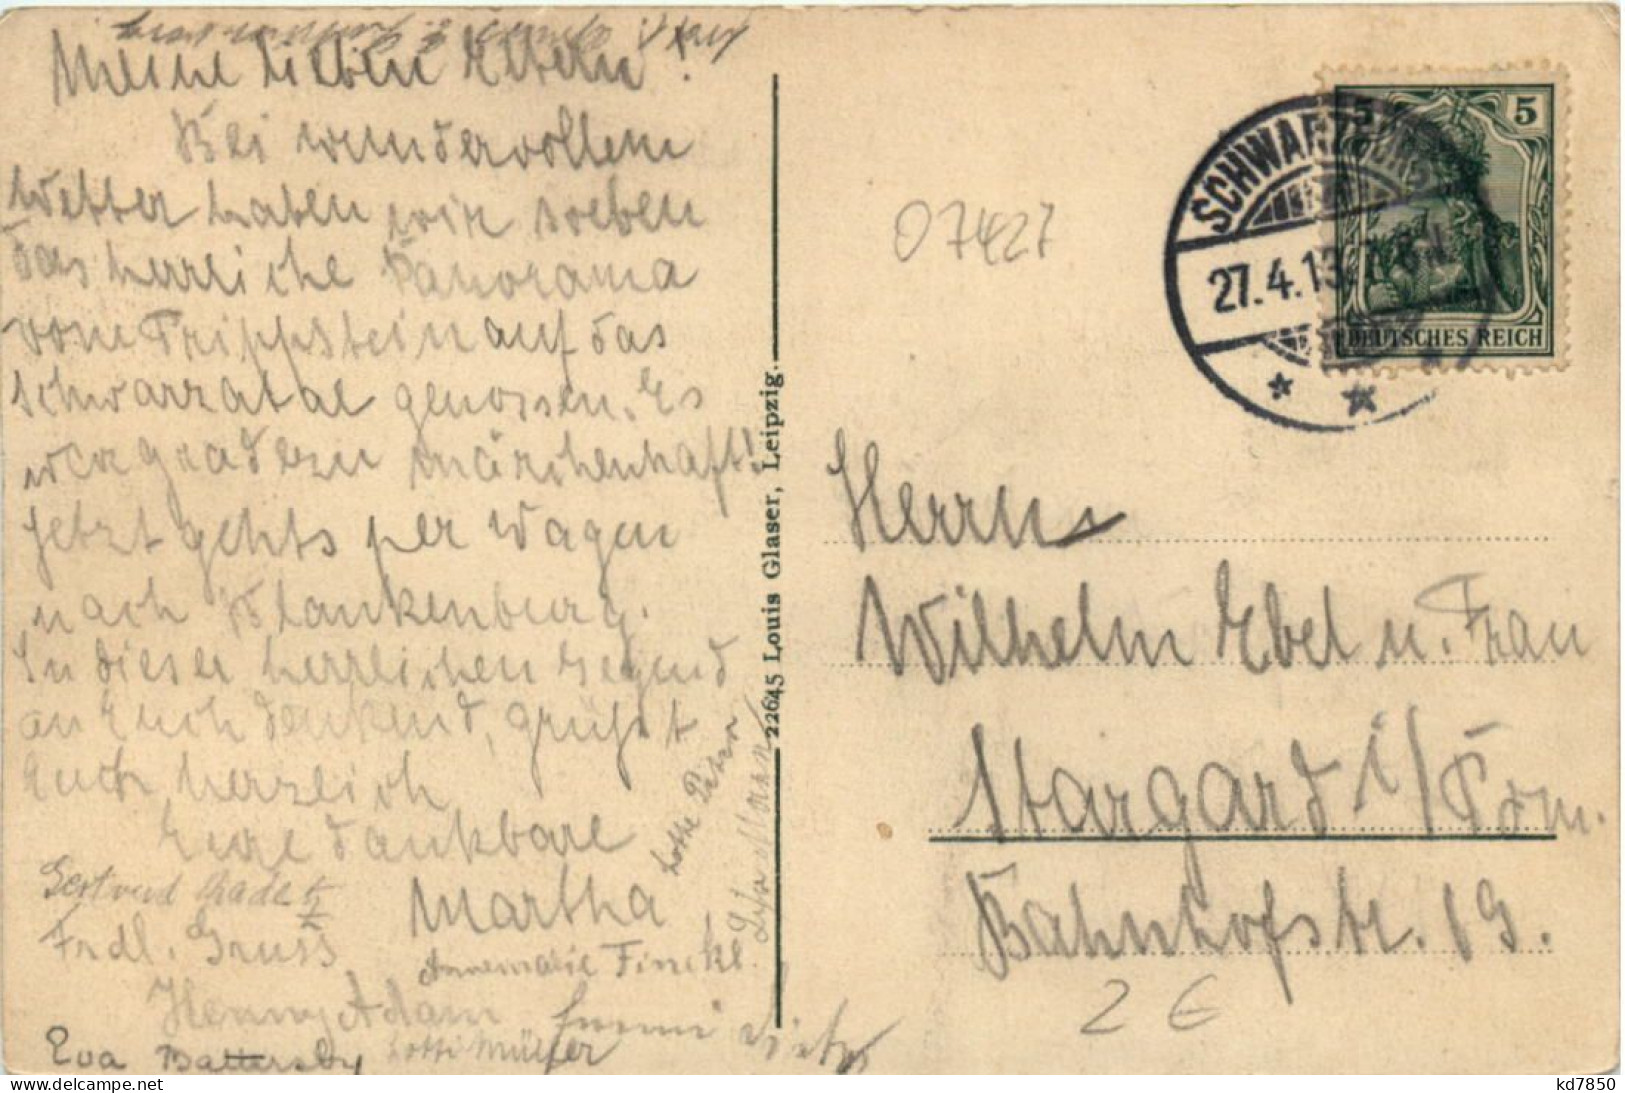 Meine lieben Eltern!
Bei wundervollem
Wetter haben wir soeben
das herrliche Panorama
vom Trippstein auf das
Schwarzatal genossen. Es
war geradezu märchenhaft!
Jetzt gehts per Wagen
nach Blankenburg.
In dieser herrlichen Gegend
an Euch denkend, grüßt
Euch herzlich
Eure dankbare
Martha
Gertrud
Frdl. Gruss
Annemarie Finckl.
Henny Adam
Eva Battersby
Lotti Müller
Lotte
22645 Louis Glaser, Leipzig.
07427
SCHWARZBURG
27.4.13.
5 5
DEUTSCHES REICH
Herrn
Wilhelm Ebel u. Frau
Stargard i/Pom.
Bahnhofstr. 19.
2 €
kd7850